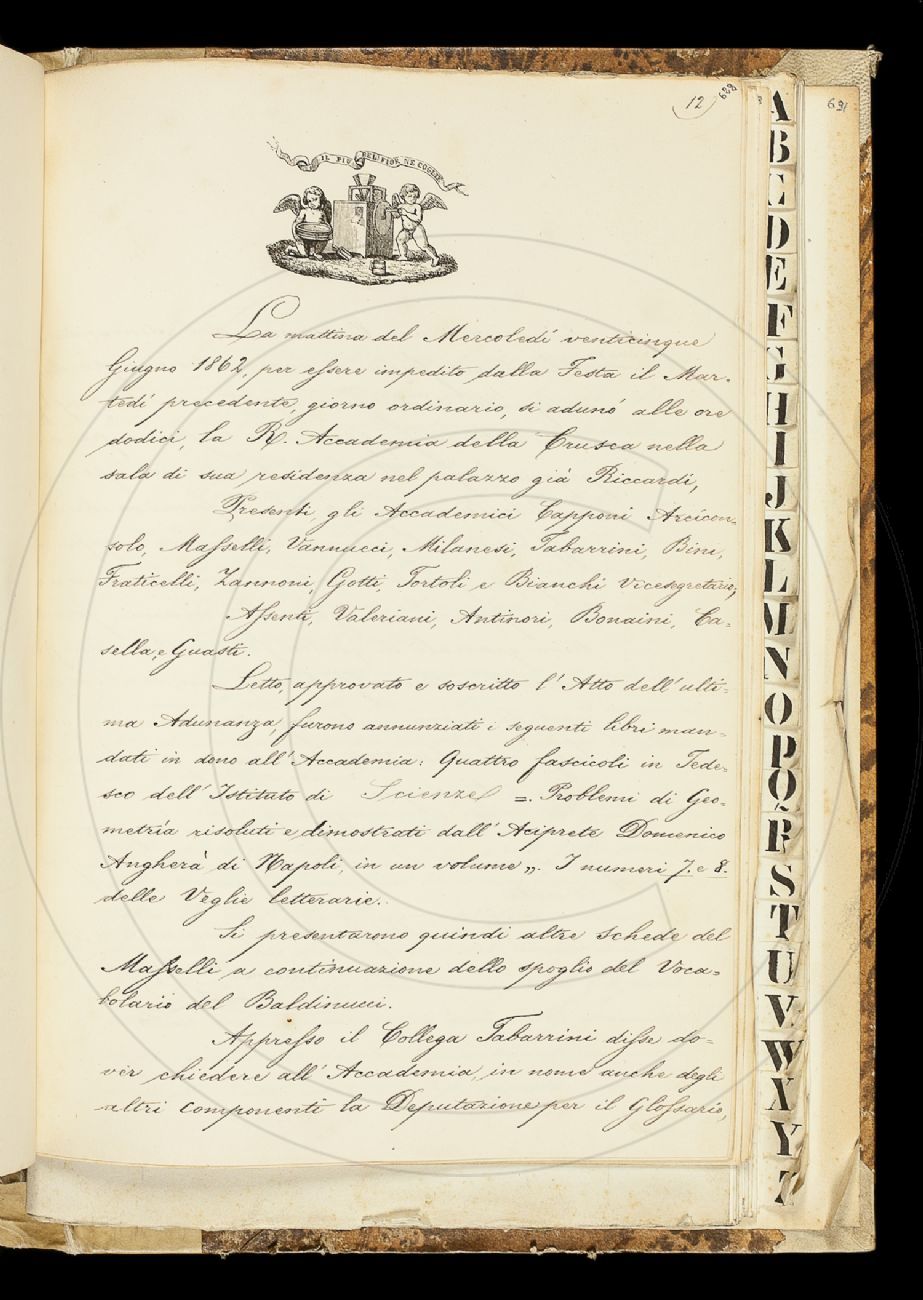 12
689
691
IL PIÙ BEL FIOR NE COGLIE
La mattina del Mercoledí venticinque
Giugno 1862, per essere impedito dalla Festa il Mar-
tedí precedente, giorno ordinario, si adunó alle ore
dodici, la R. Accademia della Crusca nella
sala di sua residenza nel palazzo giá Riccardi,
Presenti, gli Accademici Capponi Arcicon-
solo, Masselli, Vannucci, Milanesi, Tabarrini, Bini,
Fraticelli, Zannoni, Gotti, Tortoli e Bianchi Vicesegretario;
Assenti, Valeriani, Antinori, Bonaini, Ca-
sella, e Guasti.
Letto, approvato e soscritto l'Atto dell'ulti-
ma Adunanza, furono annunziati i seguenti libri man-
dati in dono all'Accademia: Quattro fascicoli in Tede-
sco dell'Istituto di Scienze =. Problemi di Geo-
metría risoluti e dimostrati dall'Aciprete Domenico
Angherà di Napoli, in un volume „. I numeri 7. e 8.
delle Veglie letterarie.
Si presentarono quindi altre schede del
Masselli a continuazione dello spoglio del Voca-
bolario del Baldinucci.
Appresso il Collega Tabarrini disse do-
ver chiedere all'Accademia, in nome anche degli
altri componenti la Deputazione per il Glossario,
A
B
C
D
E
F
G
H
I
J
K
L
M
N
O
P
Q
R
S
T
U
V
W
X
Y
Z